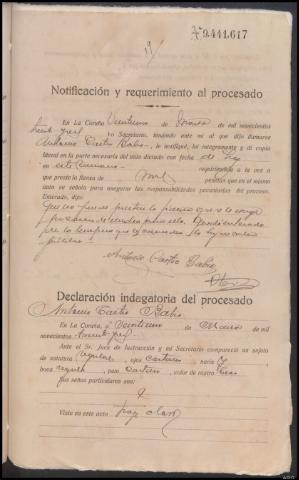 9.441.617
19
Notificación y requerimiento al procesado
En La Coruña, Veintiuno de Marzo de mil novecientos
yo Secretario, teniendo ante mí al que dijo llamarse
Antonio Castro Babío, le notifiqué, leí íntegramente y di copia
literal en la parte necesaria del auto dictado con fecha de hoy
en este sumario requiriéndole a la vez
a que preste la fianza de mil pesetas que en el mismo
auto se señala para asegurar las responsabilidades pecuniarias del proceso.
Enterado, dijo:
Que no puede prestar la fianza que se le exige
Antonio Castro Babío
Declaración indagatoria del procesado
Antonio Castro Babío
En La Coruña, a Veintiuno de Marzo de mil
novecientos
Ante el Sr. Juez de Instrucción y mi Secretario compareció un sujeto
de estatura regular, ojos castaños, nariz
boca regular, pelo castaño, color de rostro
Sus señas particulares son:
Viste en este acto traje claro